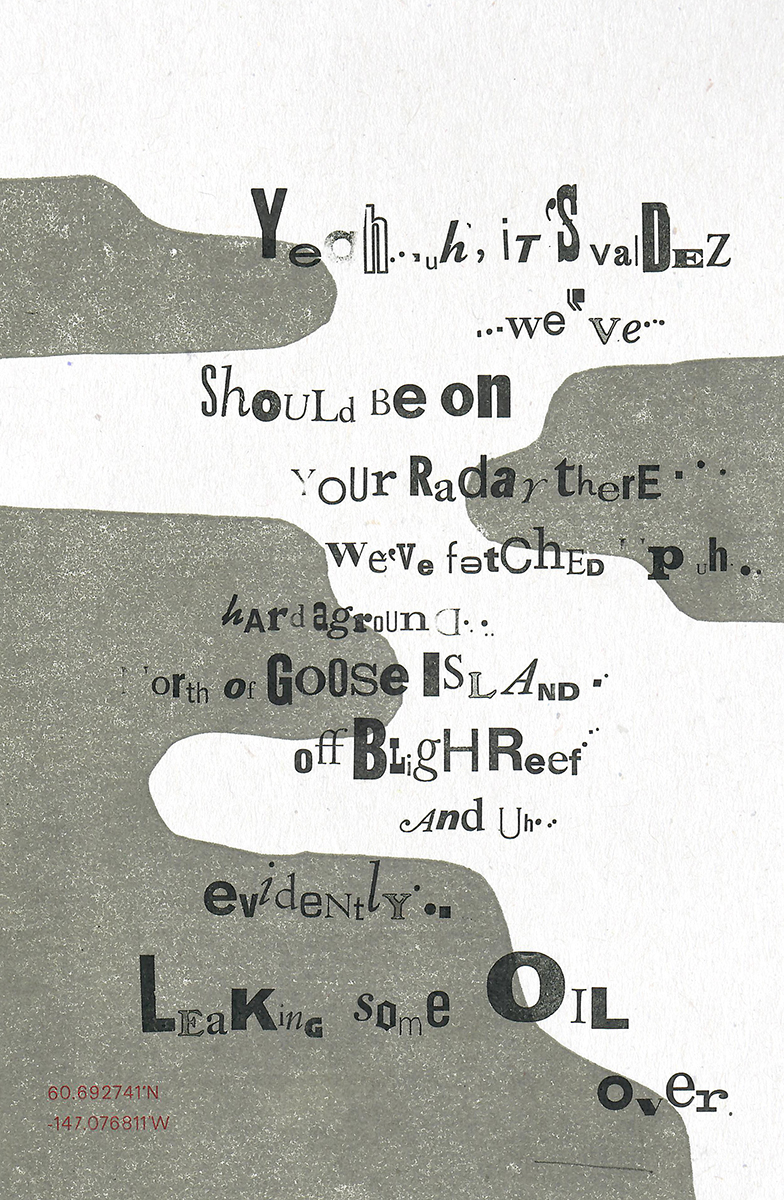 Yeah...uh, iT'S valDEZ
...we"ve...
ShoULd Be on
YOUr Radar therE...
we've fetChED up uh...
hArd agroUnD...
North of GOOSe ISLAND..
off BLigHt Reef
And Uh...
evidentlY...
LEaKinG some OIL
over.
60.692741'N
-147.076811'W